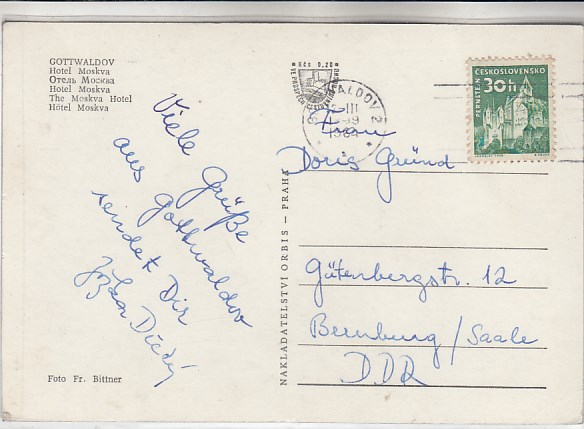 GOTTWALDOV
Hotel Moskva
Отель Москва
Hotel Moskva
The Moskva Hotel
Hôtel Moskva
Viele Grüße
aus Gottwaldov
sendet Dir
Foto Fr. Bittner
NAKLADATELSTVÍ ORBIS — PRAHA
Kčs 0,20
ALDOV 2
III
1964
ČESKOSLOVENSKO
30h
PERNŠTEJN
Frau
Doris Gründ
Gütenbergstr. 12
Bernburg/Saale
DDR